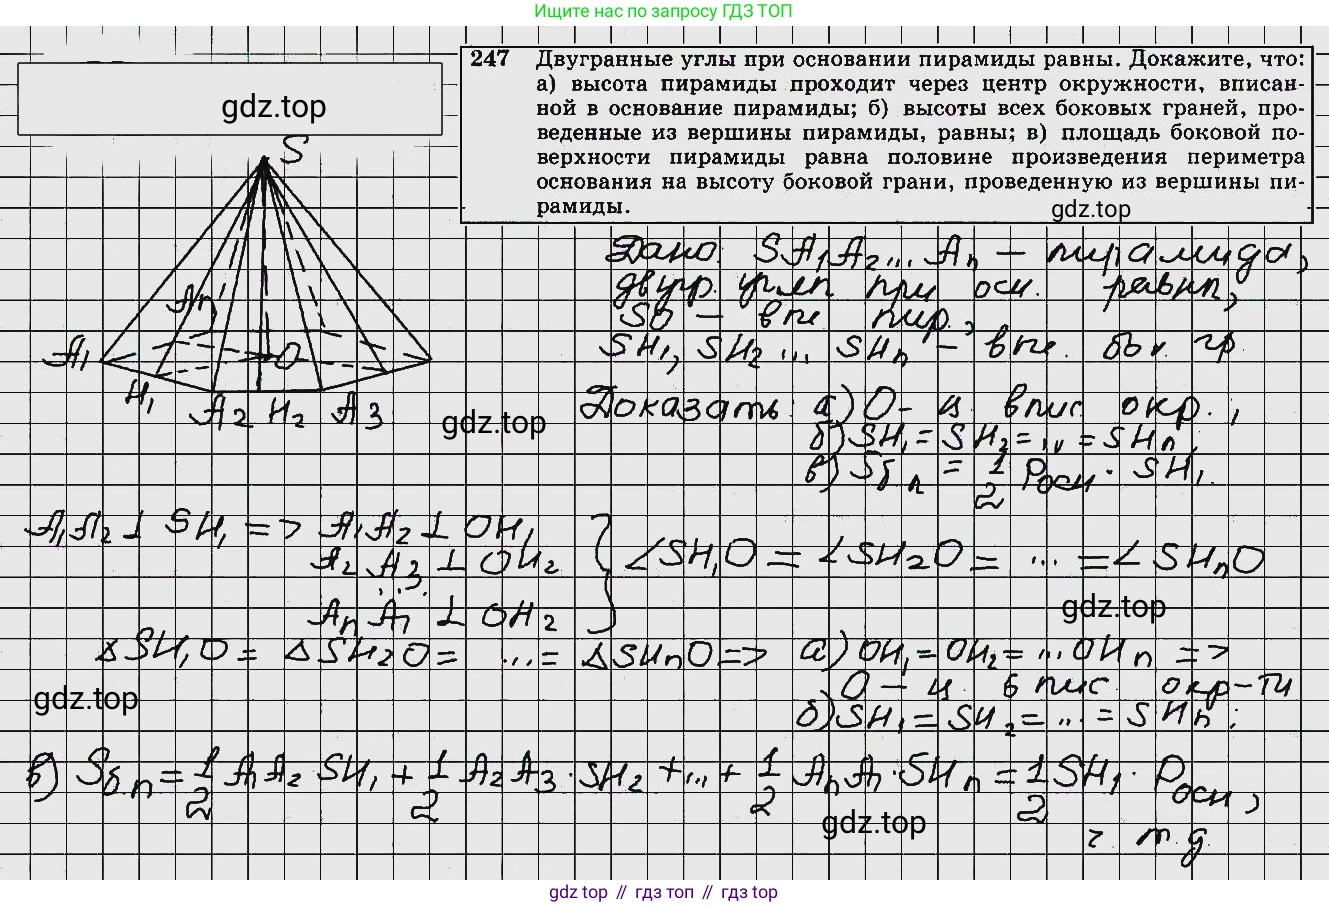 Ищите нас по запросу ГДЗ ТОП
gdz.top
247 Двугранные углы при основании пирамиды равны. Докажите, что:
а) высота пирамиды проходит через центр окружности, вписан-
ной в основание пирамиды; б) высоты всех боковых граней, про-
веденные из вершины пирамиды, равны; в) площадь боковой по-
верхности пирамиды равна половине произведения периметра
основания на высоту боковой грани, проведенную из вершины пи-
рамиды.
gdz.top
S
Aₙ
A₁
O
H₁
A₂ H₂ A₃
gdz.top
Дано: SA₁A₂...Aₙ – пирамида,
двугр. углы при осн. равны,
SO – выс. пир.,
SH₁, SH₂ ... SHₙ – выс. бок. гр.
Доказать: а) O – ц. впис. окр.,
б) SH₁ = SH₂ = ... = SHₙ,
в) Sб.п = 1/2 Pосн · SH₁.
A₁A₂ ⊥ SH₁ => A₁A₂ ⊥ OH₁
A₂A₃ ⊥ OH₂
...
AₙA₁ ⊥ OH₂
} ∠SH₁O = ∠SH₂O = ... = ∠SHₙO
gdz.top
△SH₁O = △SH₂O = ... = △SHₙO => а) OH₁ = OH₂ = ...OHₙ =>
O – ц. впис. окр-ти
gdz.top
б) SH₁ = SH₂ = ... = SHₙ;
в) Sб.п = 1/2 A₁A₂ · SH₁ + 1/2 A₂A₃ · SH₂ + ... + 1/2 AₙA₁ · SHₙ = 1/2 SH₁ · Pосн,
gdz.top
ч. т. д.
gdz top // гдз топ // gdz top